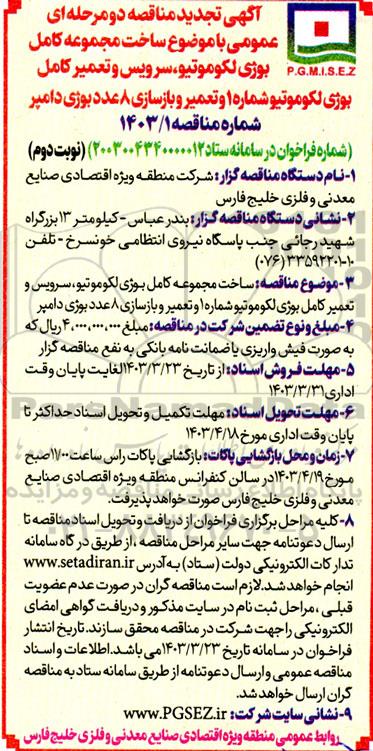 آگهی تجدید مناقصه دو مرحله ای
عمومی با موضوع ساخت مجموعه کامل
بوژی لکوموتیو، سرویس و تعمیر کامل
P.G.M.I.S.E.Z
بوژی لکوموتیو شماره ۱ و تعمیر و بازسازی ۸ عدد بوژی دامپر
شماره مناقصه ۱۴۰۳/۱
(شماره فراخوان در سامانه ستاد ۲۰۰۳۰۰۴۳۴۰۰۰۰۰۱۲) (نوبت دوم)
۱- نام دستگاه مناقصه گزار: شرکت منطقه ویژه اقتصادی صنایع
معدنی و فلزی خلیج فارس
۲- نشانی دستگاه مناقصه گزار: بندر عباس - کیلومتر ۱۳ بزرگراه
شهید رجائی جنب پاسگاه نیروی انتظامی خونسرخ - تلفن
۱۰-۳۳۵۹۲۲۰۱ (۰۷۶)
۳- موضوع مناقصه: ساخت مجموعه کامل بوژی لکوموتیو، سرویس و
تعمیر کامل بوژی لکوموتیو شماره ۱ و تعمیر و بازسازی ۸ عدد بوژی دامپر
۴- مبلغ و نوع تضمین شرکت در مناقصه: مبلغ ۴,۰۰۰,۰۰۰,۰۰۰ ریال که
به صورت فیش واریزی یا ضمانت نامه بانکی به نفع مناقصه گزار
۵- مهلت فروش اسناد: از تاریخ ۱۴۰۳/۳/۲۳ لغایت پایان وقت
اداری ۱۴۰۳/۳/۳۱
۶- مهلت تحویل اسناد: مهلت تکمیل و تحویل اسناد حداکثر تا
پایان وقت اداری مورخ ۱۴۰۳/۴/۱۸
۷- زمان و محل بازگشایی پاکات: بازگشایی پاکات راس ساعت ۱۱/۰۰ صبح
مورخ ۱۴۰۳/۴/۱۹ در سالن کنفرانس منطقه ویژه اقتصادی صنایع
معدنی و فلزی خلیج فارس صورت خواهد پذیرفت.
۸- کلیه مراحل برگزاری فراخوان از دریافت و تحویل اسناد مناقصه تا
ارسال دعوتنامه جهت سایر مراحل مناقصه، از طریق درگاه سامانه
تدارکات الکترونیکی دولت (ستاد) به آدرس www.setadiran.ir
انجام خواهد شد. لازم است مناقصه گران در صورت عدم عضویت
قبلی، مراحل ثبت نام در سایت مذکور و دریافت گواهی امضای
الکترونیکی را جهت شرکت در مناقصه محقق سازند. تاریخ انتشار
فراخوان در سامانه تاریخ ۱۴۰۳/۳/۲۳ می باشد. اطلاعات و اسناد
مناقصه عمومی و ارسال دعوتنامه از طریق سامانه ستاد به مناقصه
گران ارسال خواهد شد.
۹- نشانی سایت شرکت: www.PGSEZ.ir
روابط عمومی منطقه ویژه اقتصادی صنایع معدنی و فلزی خلیج فارس